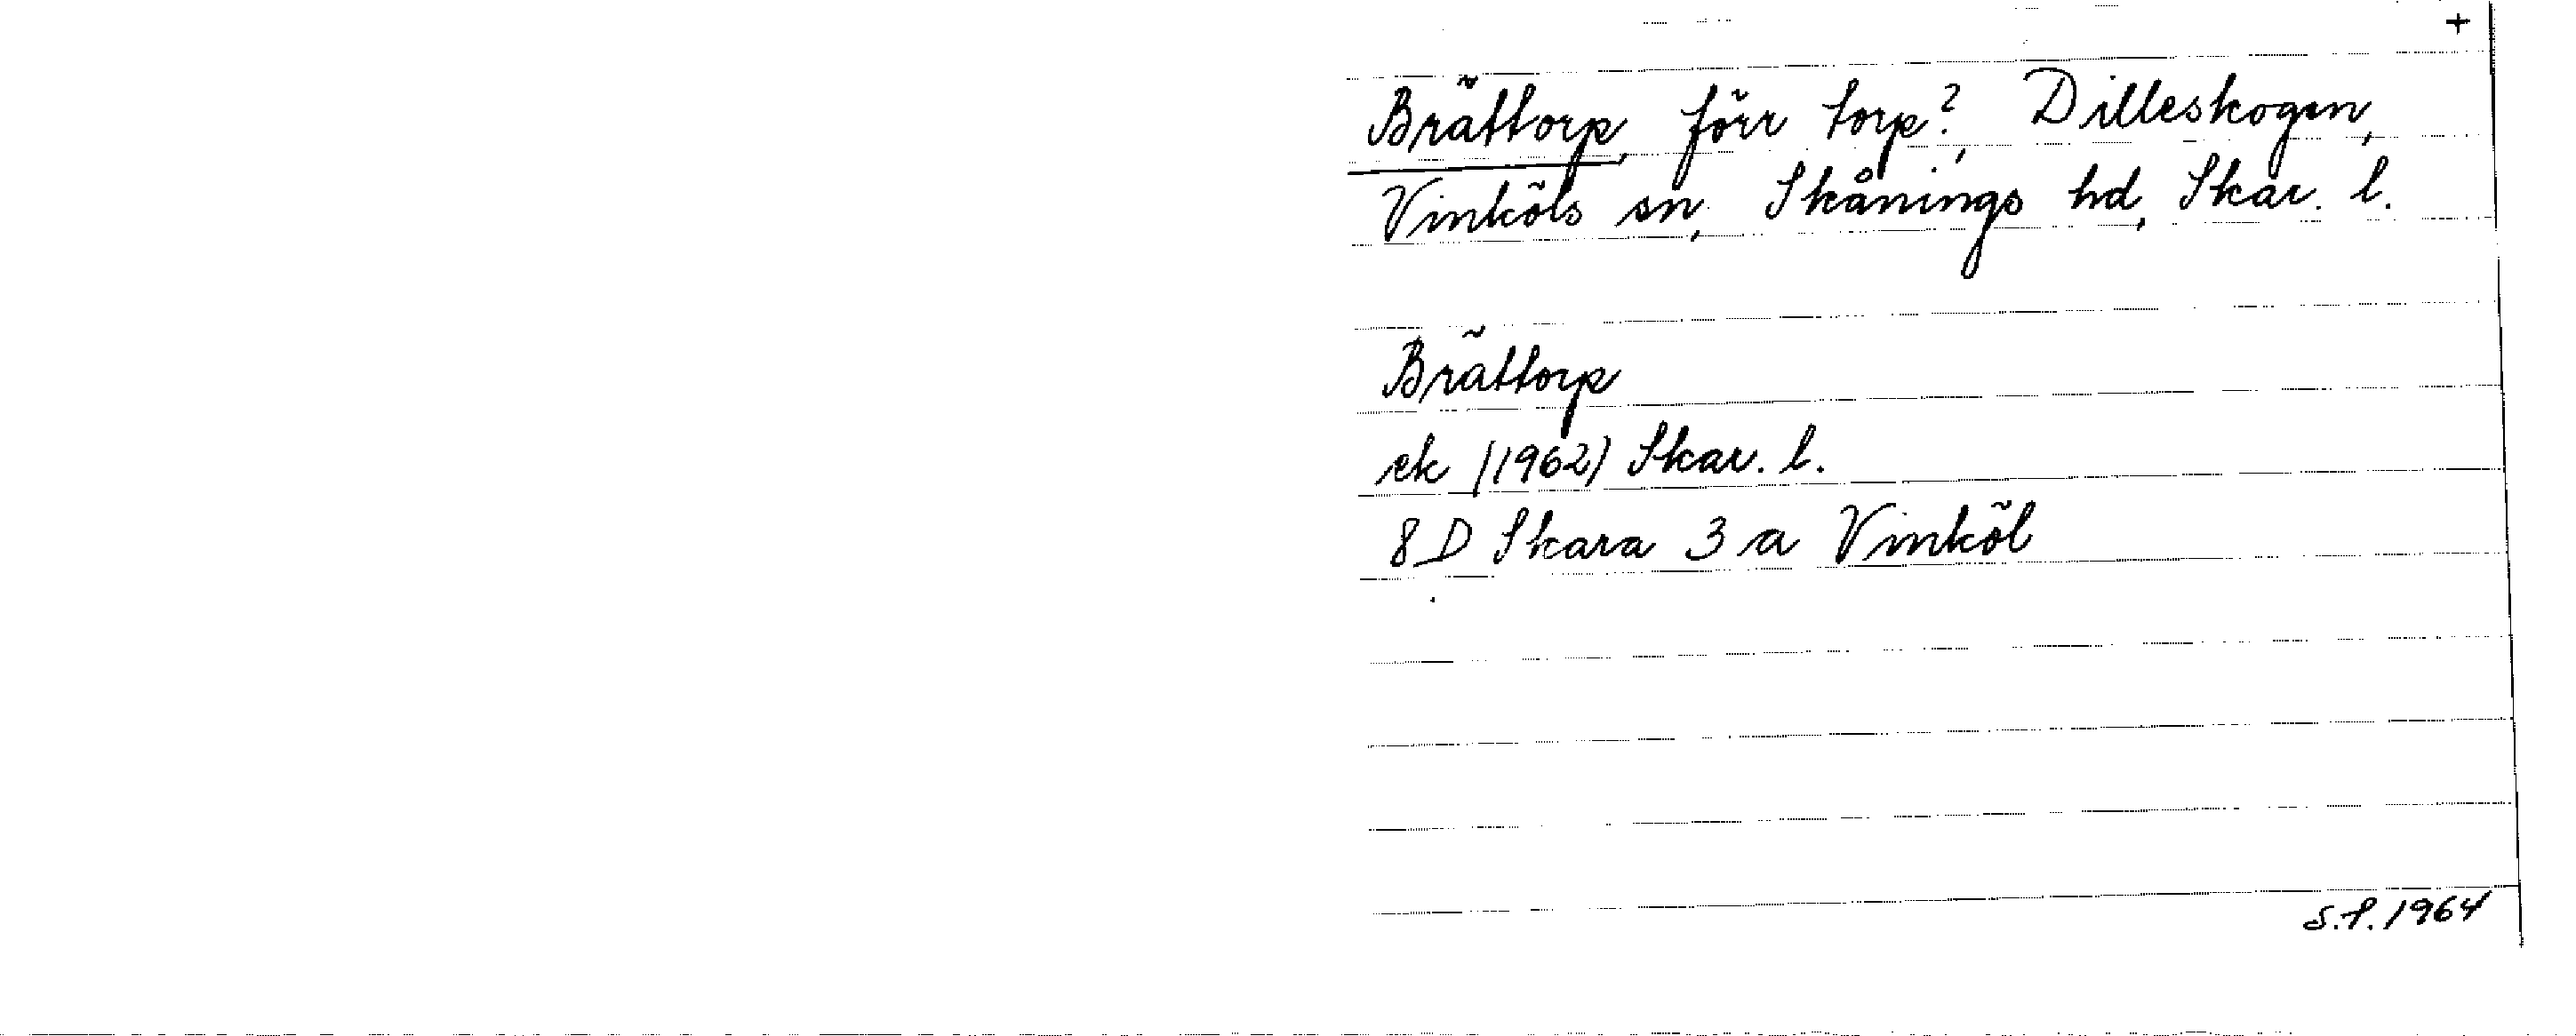 +
Brättorp, förr torp?, Dilleskogen,
Vinköls sn, Skånings hd, Skar. l.
Brättorp
ek (1962) Skar. l.
8D Skara 3 a Vinköl
S.P. 1964